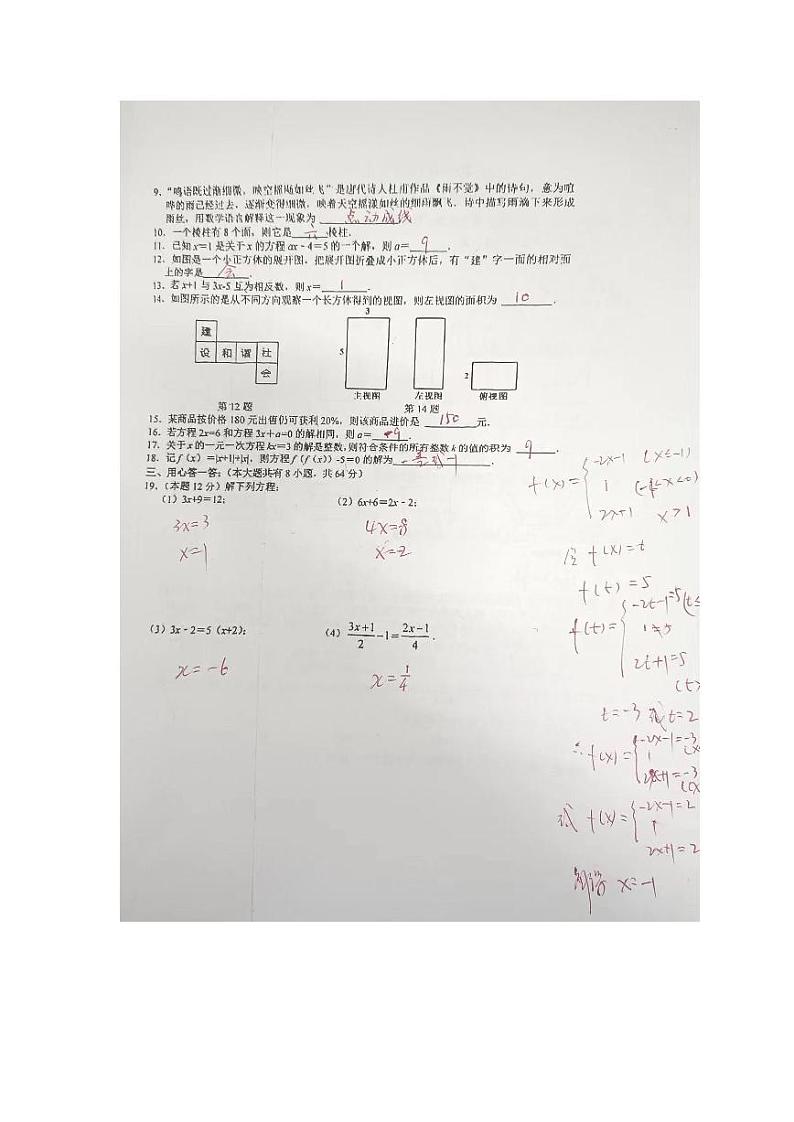 9、“鸣语既过渐细微，映空摇飏如丝飞”是唐代诗人杜甫作品《雨不觉》中的诗句，意为喧
哗的雨已经过去，逐渐变得细微，映着天空摇漾如丝的细雨飘飞．诗中描写雨滴下来形成
雨丝，用数学语言解释这一现象为 点动成线
10．一个棱柱有8个面，则它是 六 棱柱．
11．已知x＝1是关于x的方程ax－4＝5的一个解，则a＝ 9 ．
12．如图是一个小正方体的展开图，把展开图折叠成小正方体后，有“建”字一面的相对面
上的字是 会 ．
13．若x+1与3x-5互为相反数，则x＝ 1 ．
14．如图所示的是从不同方向观察一个长方体得到的视图，则左视图的面积为 10 ．
建
设 和 谐 社
会
第12题
3
5
主视图
左视图
2
俯视图
第14题
15．某商品按价格180元出售仍可获利20%，则该商品进价是 150 元．
16．若方程2x=6和方程3x＋a=0的解相同，则a＝ -9 ．
17．关于x的一元一次方程kx＝3的解是整数，则符合条件的所有整数k的值的积为 9 ．
18．记f（x）=|x+1|+|x|，则方程f（f（x））-5＝0的解为
三、用心答一答：（本大题共有8小题，共64分）
19．（本题12分）解下列方程：
（1）3x+9＝12；
（2）6x+6＝2x－2；
3x=3
x=1
4x=-8
x=-2
（3）3x－2＝5（x+2）；
（4）(3x+1)/2－1＝(2x−1)/4．
x=-6
x=1/4
f(x)= { -2x-1 (x≤-1)
1
2x+1 x>1
令 f(x)=t
f(t)=5
f(t)= { -2t-1=5 (t≤
1≠5
2t+1=5
t=-3 或 t=2
∴ f(x)= { -2x-1=-3
1
2x+1=-3
或 f(x)= { -2x-1=2
1
2x+1=2
x=-1